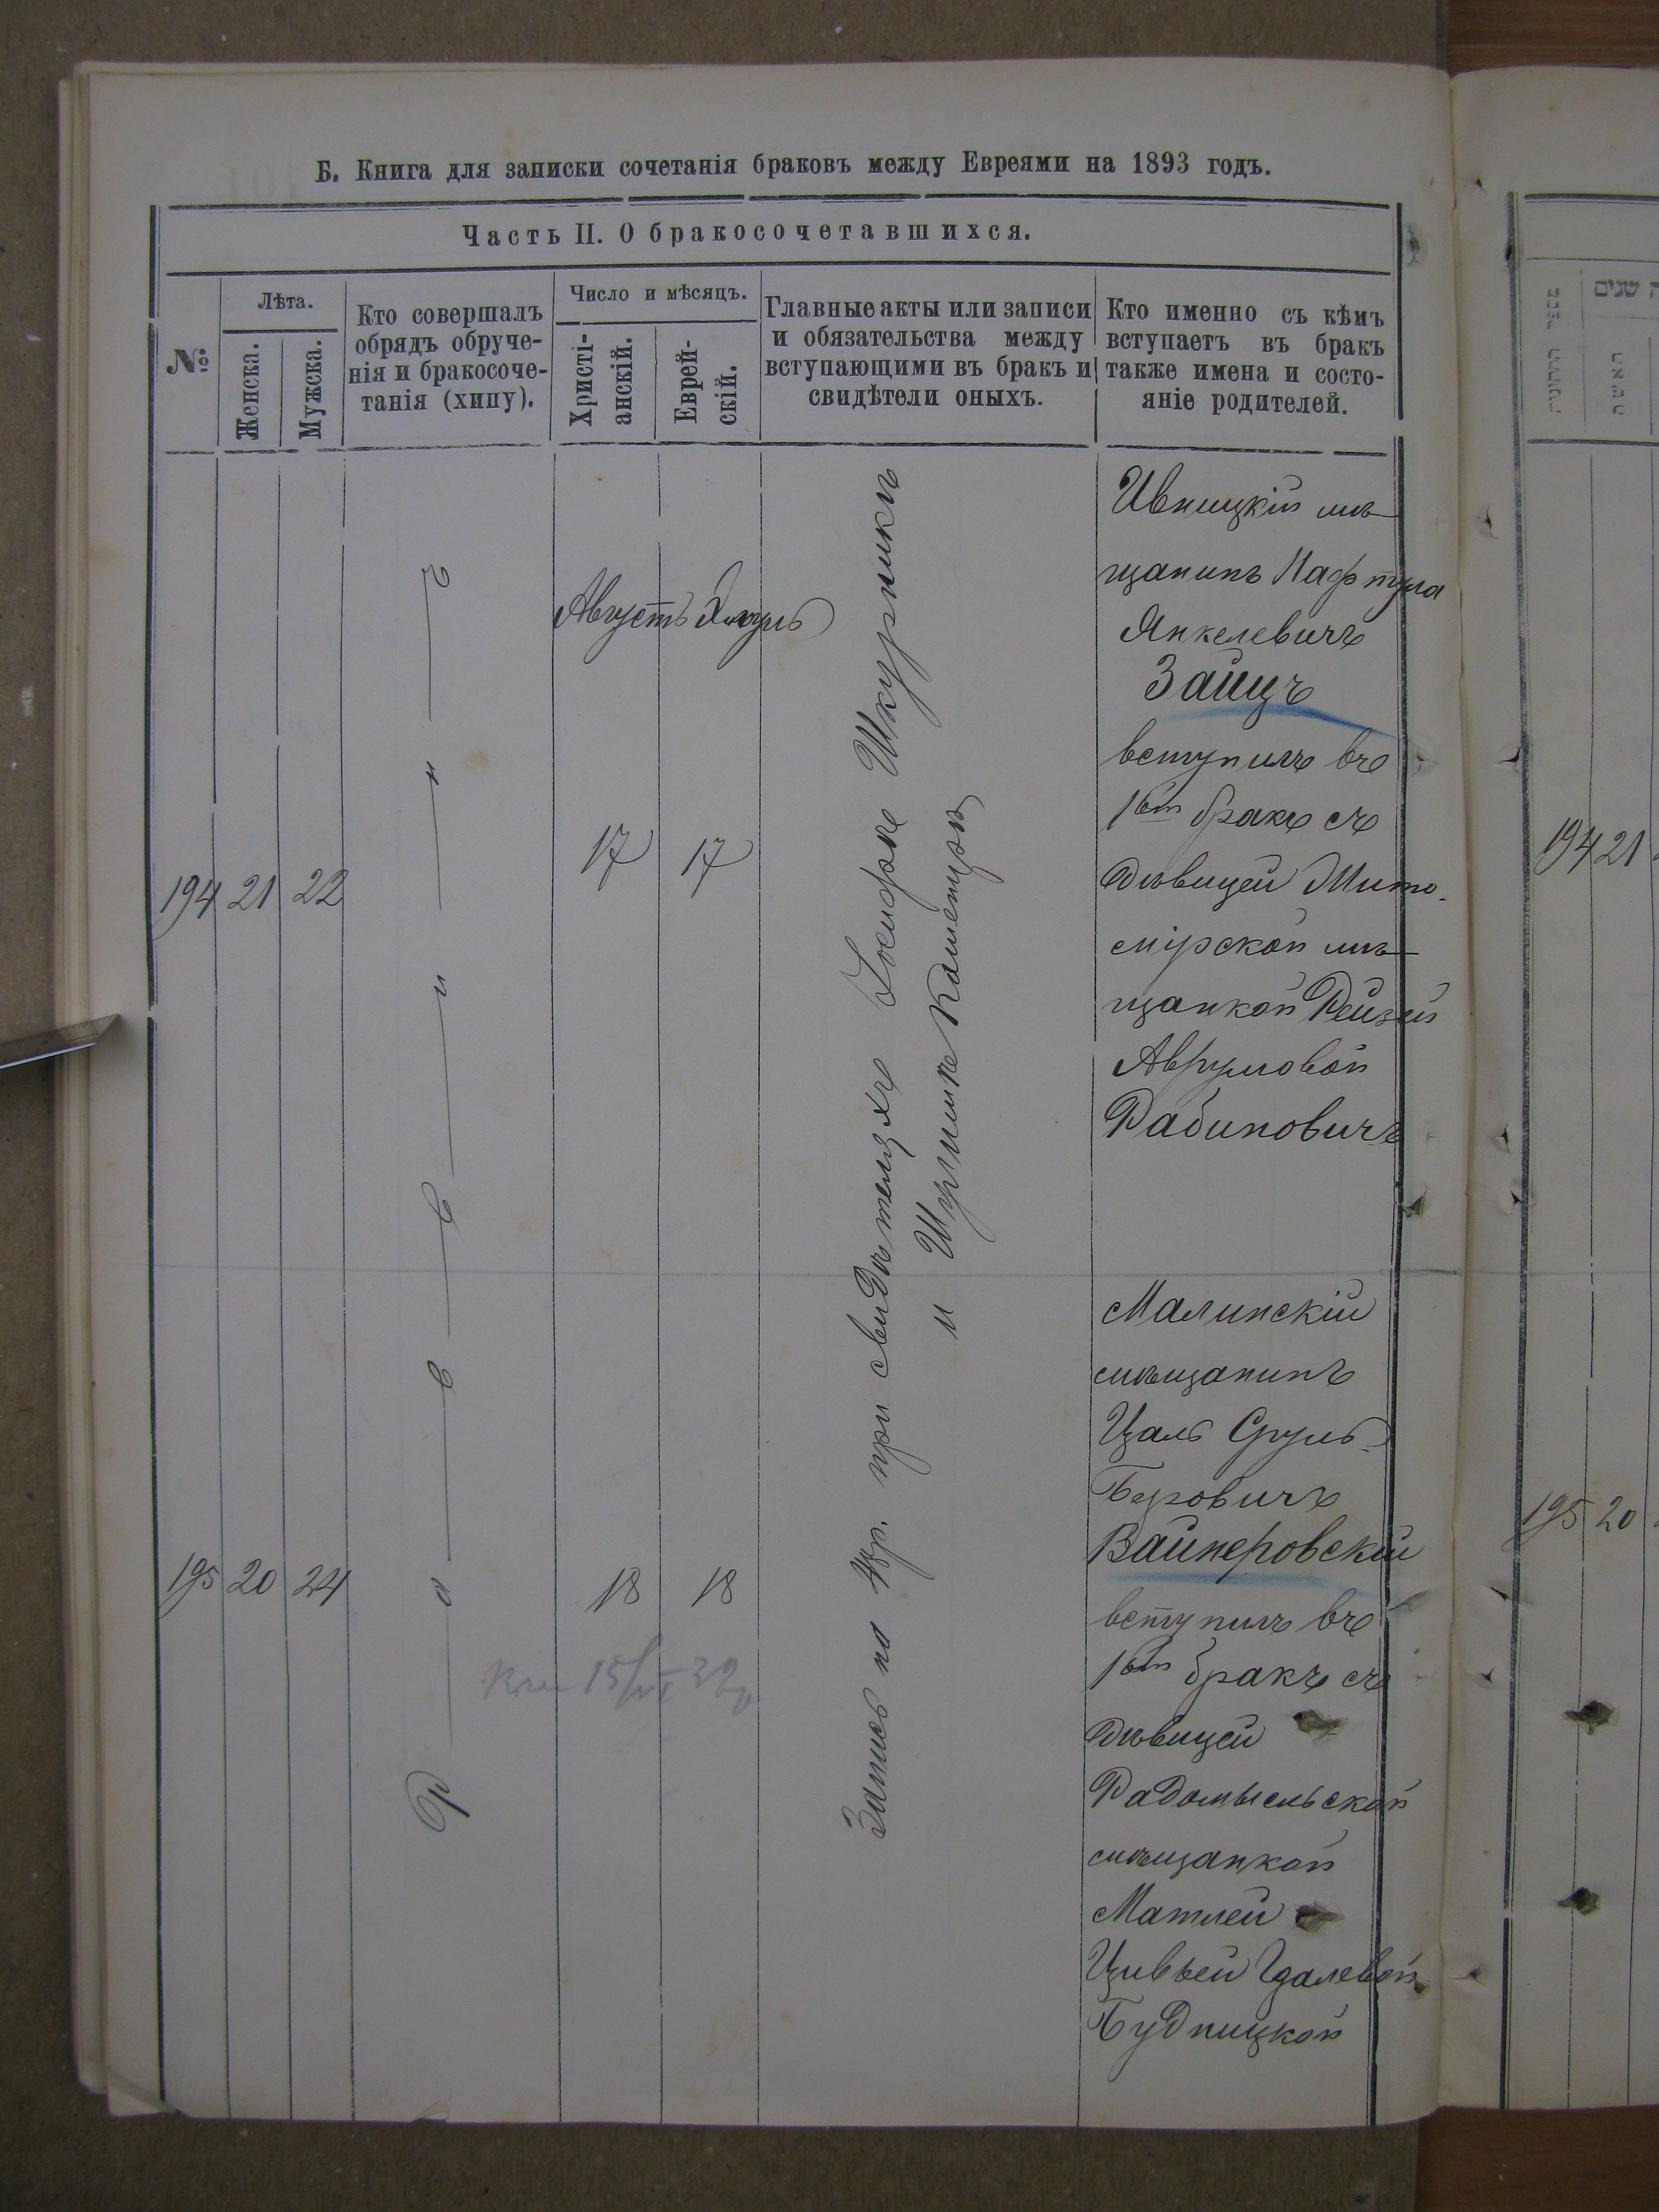 Б. Книга для записки сочетанія браковъ между Евреями на 1893 годъ.
Часть II. О бракосочетавшихся.
№
Лѣта.
Женска.
Мужска.
Кто совершалъ
обрядъ обруче-
нія и бракосоче-
танія (хипу).
Число и мѣсяцъ.
Христі-
анскій.
Еврей-
скій.
Главные акты или записи
и обязательства между
вступающими въ бракъ и
свидѣтели оныхъ.
Кто именно съ кѣмъ
вступаетъ въ бракъ
также имена и состо-
яніе родителей.
194 21 22
Р а в в и н ъ
Августъ Элулъ
17 17
Запись на 48р. при свидѣтеляхъ Іосифѣ Шкурникъ
и Шулимѣ Каменцкій
Ивницкій мѣ-
щанинъ Нафтула
Янкелевичъ
Зайцъ
вступилъ въ
1вый бракъ съ
дѣвицей Жито-
мірской мѣ-
щанкой Рейзей
Аврумовой
Рабиновичъ
195 20 24
18 18
15/VI 32
Малинскій
мѣщанинъ
Цаль Сруль-
Беровичъ
Вайнеровскій
вступилъ въ
1вый бракъ съ
дѣвицей
Радомысльской
мѣщанкой
Матлей
Цивьей Гдалевой
Будницкой
194 21
195 20